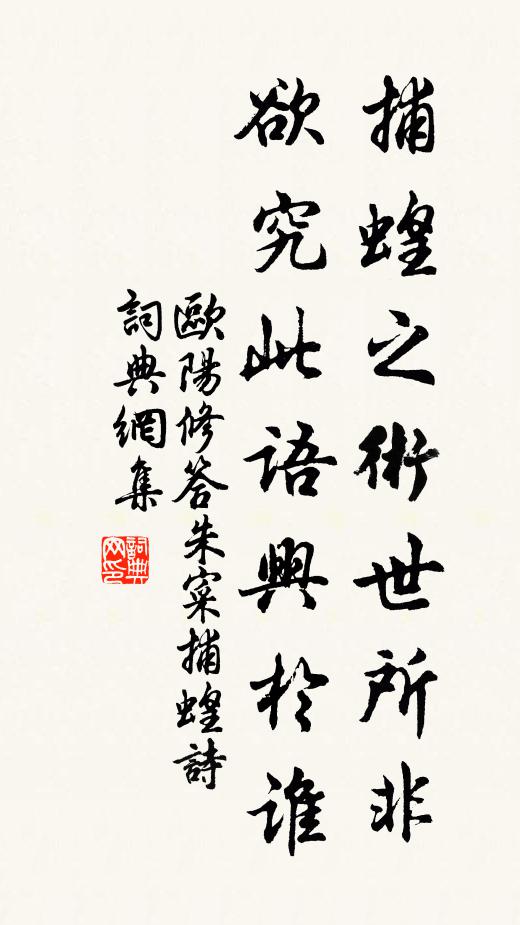 捕蝗之術世所非
欲究此語興於誰
歐陽修答朱寀捕蝗詩
詞典網集
詞典网印